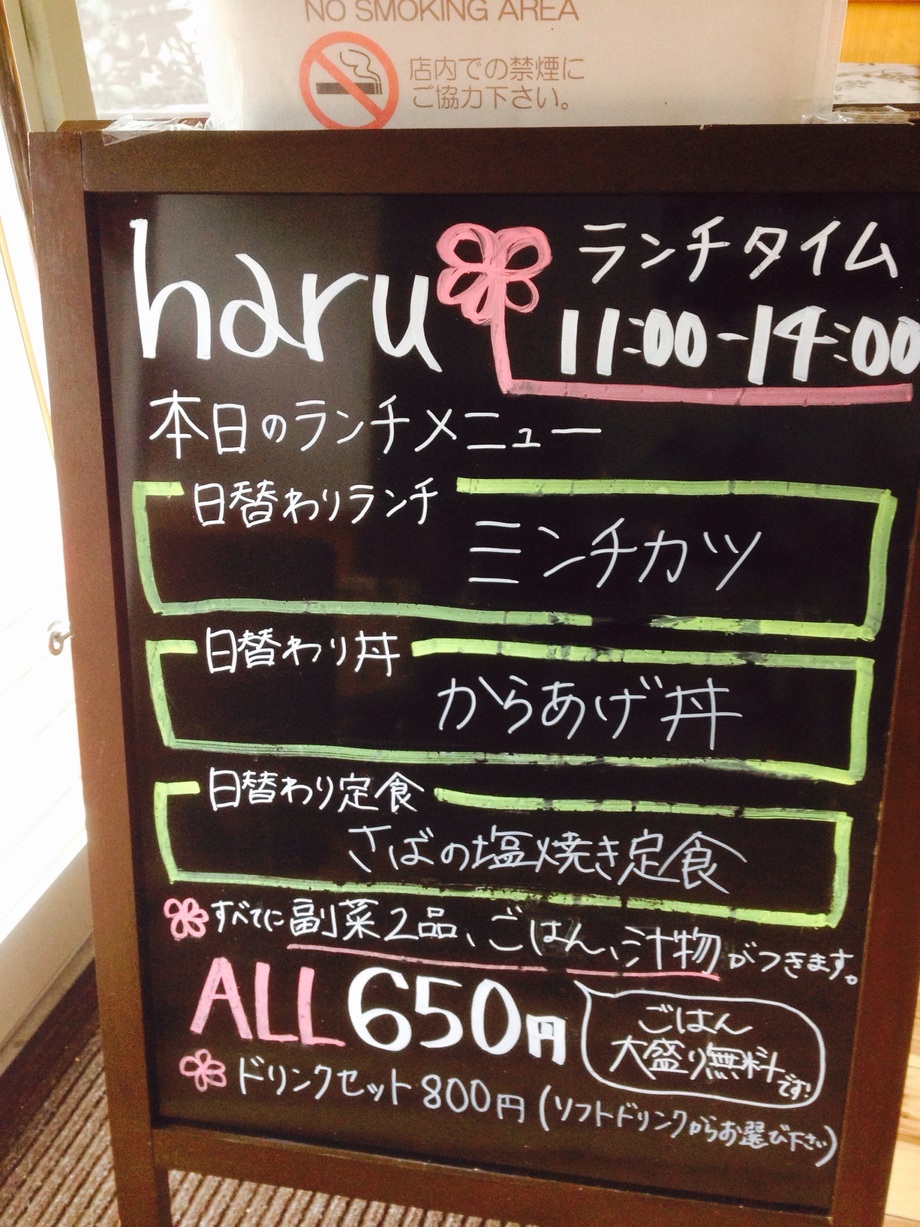 NO SMOKING AREA
店内での禁煙に
ご協力下さい。
haru
ランチタイム
11:00-14:00
本日のランチメニュー
日替わりランチ
ミンチカツ
日替わり丼
からあげ丼
日替わり定食
さばの塩焼き定食
すべてに副菜2品、ごはん、汁物がつきます。
ALL 650円
ごはん
大盛り無料です!
ドリンクセット800円(ソフトドリンクからお選び下さい)